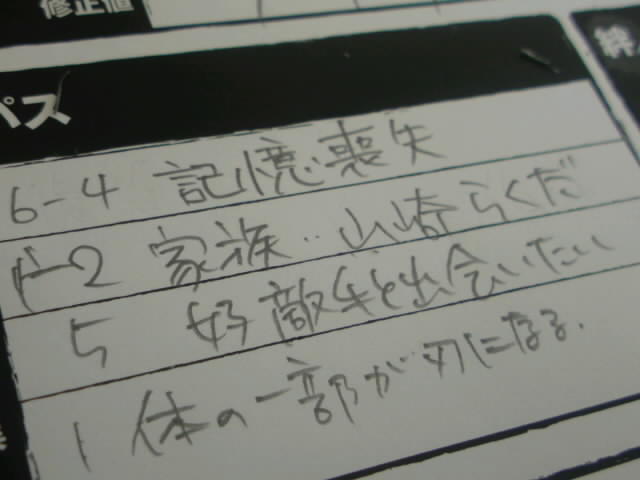 修正値
パス
絆
6-4 記憶喪失
家族‥山崎らくだ
5 好敵手と出会いたい
1 体の一部が刃になる.